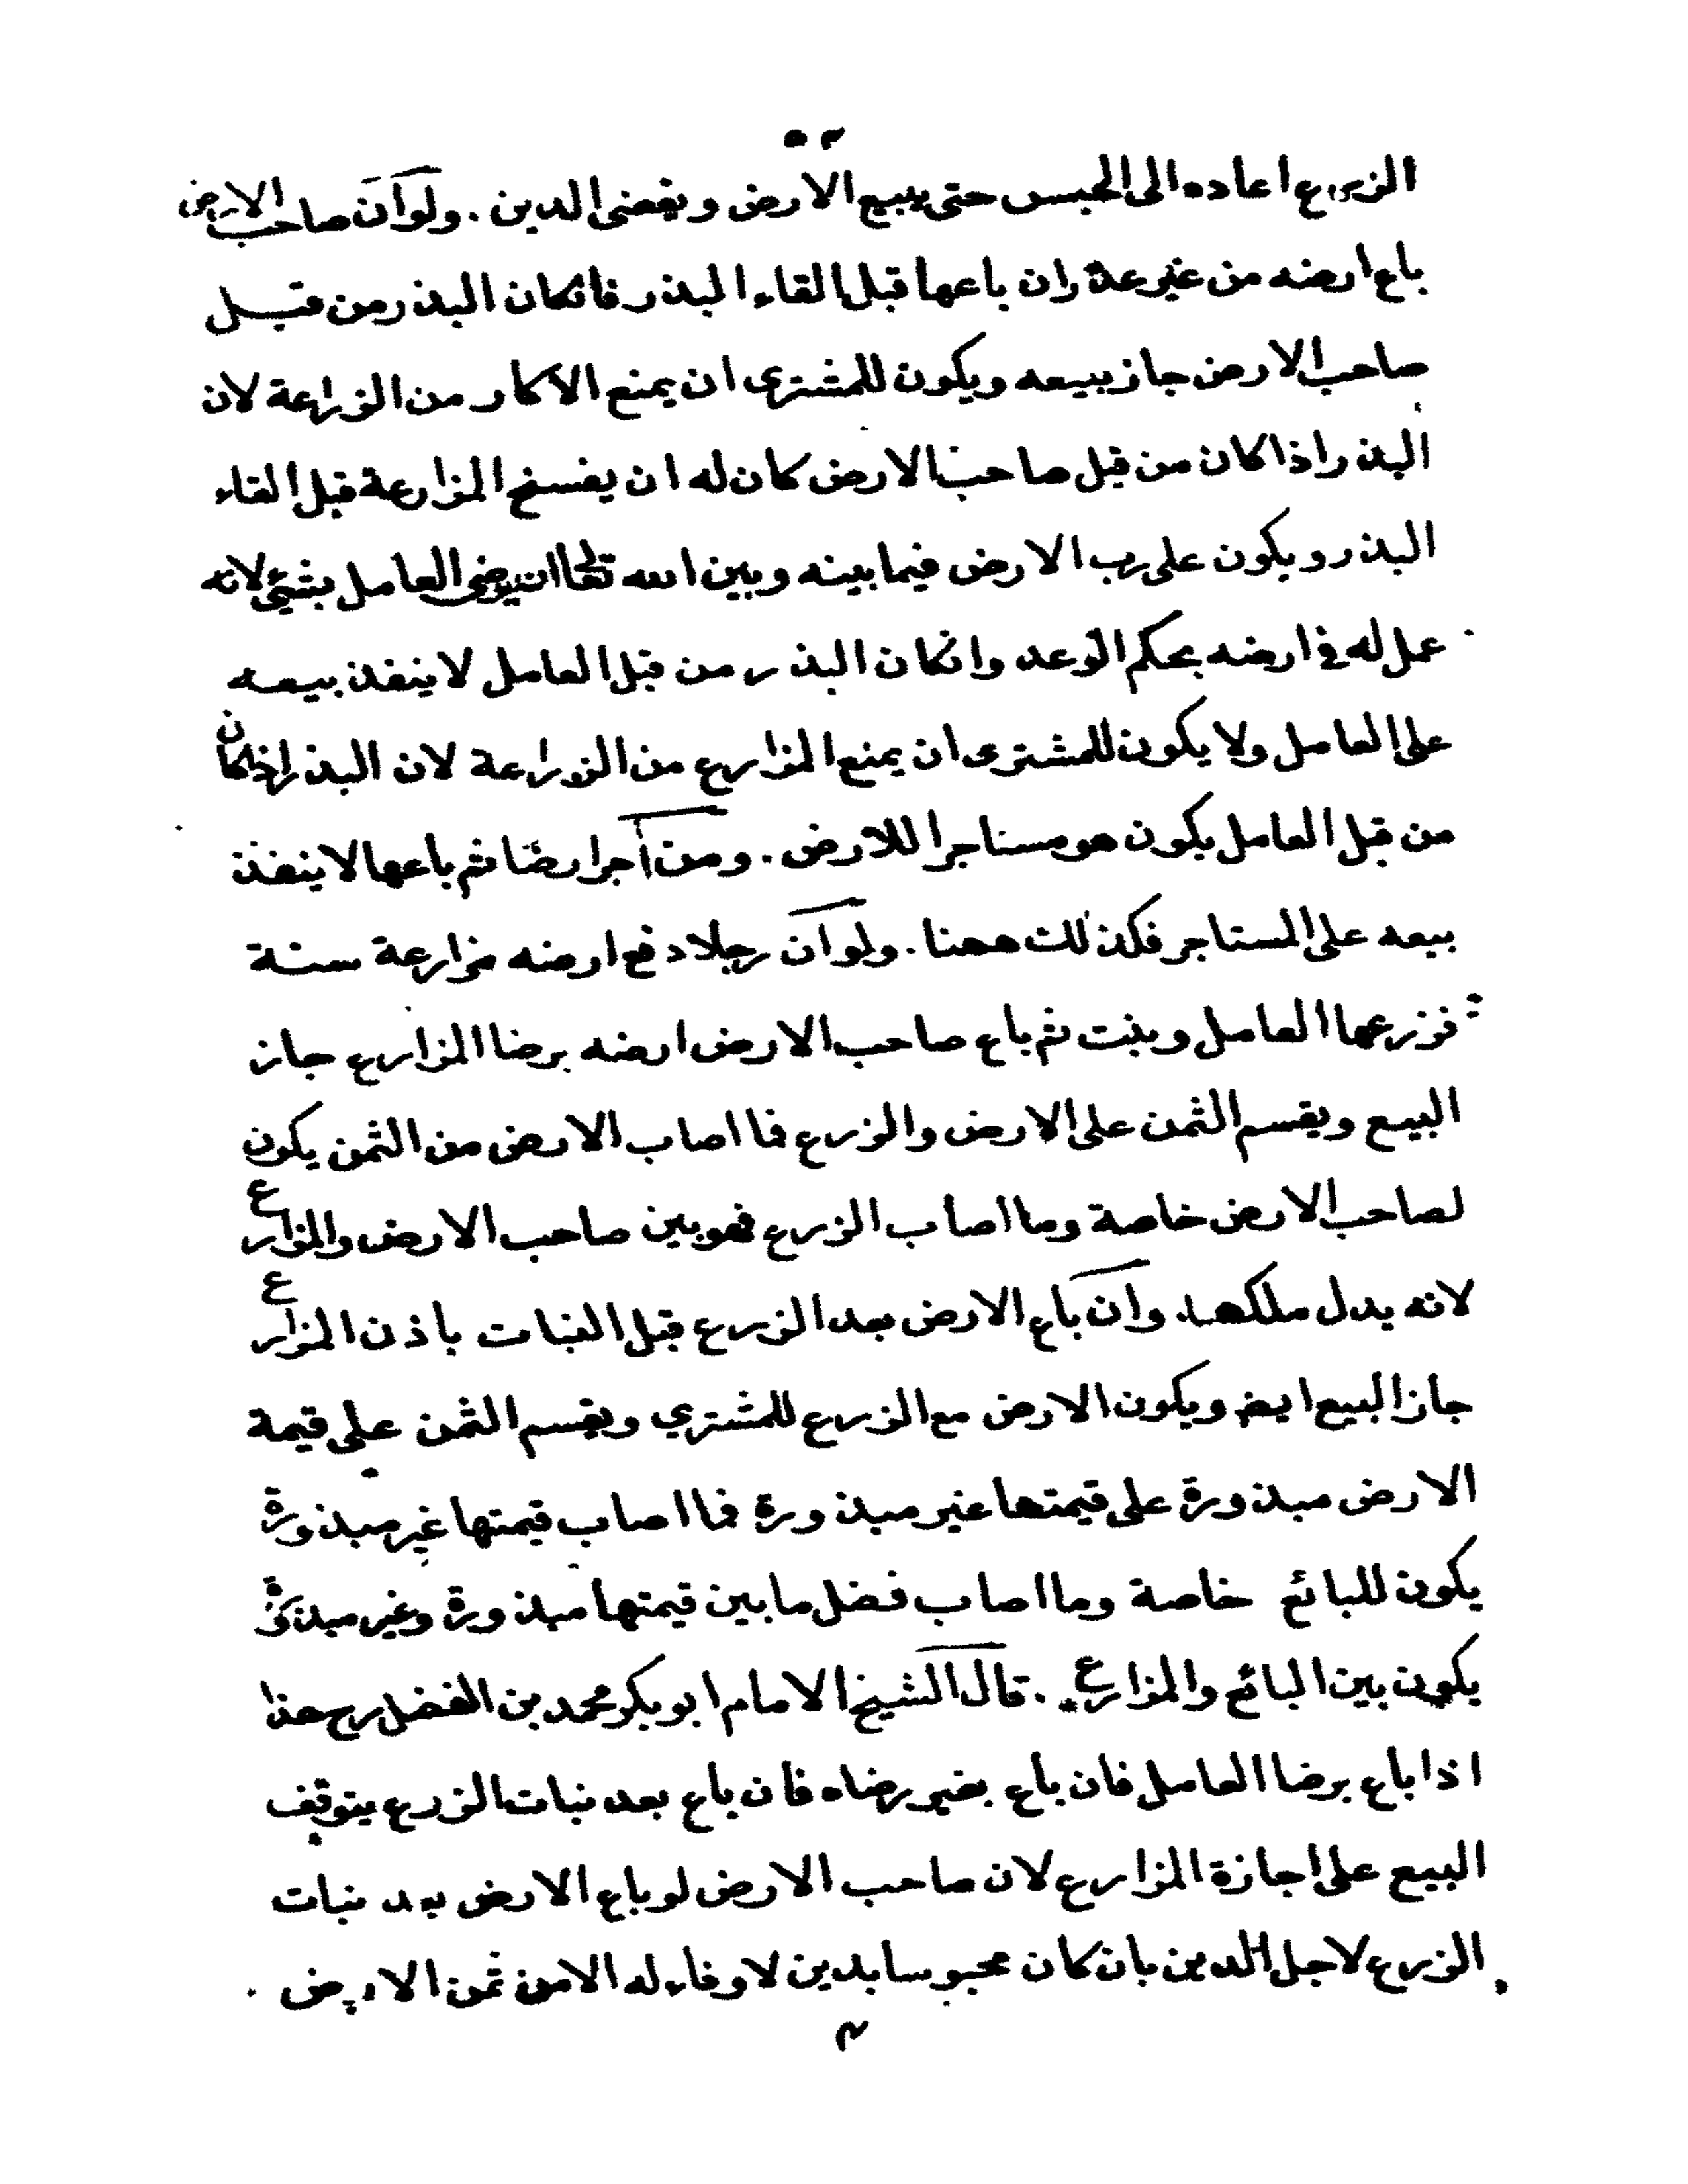 ٥٢
الزرع اعاده الى الحبس حتى يبيع الارض ويقضى الدين . ولو ان صاحب الارض
باع ارضه من غير عذر ان باعها قبل القاء البذر فانكان البذر من قبل
صاحب الارض جاز بيعه ويكون للمشترى ان يمنع الاكار من الزراعة لان
البذر اذا كان من قبل صاحب الارض كان له ان يفسخ المزارعة قبل القاء
البذر ويكون على رب الارض فيما بينه وبين الله تعالى ان يرضى العامل بشيئ لانه
عمل له في ارضه بحكم الوعد وانكان البذر من قبل العامل لا ينفذ بيعه
على العامل ولا يكون للمشترى ان يمنع المزارع من الزراعة لان البذر اذا كان
من قبل العامل يكون هو مستاجرا للارض . ومن آجر ارضا ثم باعها لا ينفذ
بيعه على المستاجر فكذلك ههنا . ولو ان رجلا دفع ارضه مزارعة سنة
فزرعها العامل ونبت ثم باع صاحب الارض ارضه برضا المزارع جاز
البيع ويقسم الثمن على الارض والزرع فما اصاب الارض من الثمن يكون
لصاحب الارض خاصة وما اصاب الزرع فهو بين صاحب الارض والمزارع
لانه بدل ملكهما . وان باع الارض بعد الزرع قبل النبات باذن المزارع
جاز البيع ايض ويكون الارض مع الزرع للمشتري ويقسم الثمن على قيمة
الارض مبذورة على قيمتها غير مبذورة فما اصاب قيمتها غير مبذورة
يكون للبائع خاصة وما اصاب فضل ما بين قيمتها مبذورة وغير مبذورة
يكون بين البائع والمزارع . قال الشيخ الامام ابو بكر محمد بن الفضل رح هذا
اذا باع برضا العامل فان باع بغير رضاه فان باع بعد نبات الزرع يتوقف
البيع على اجازة المزارع لان صاحب الارض لو باع الارض بعد نبات
الزرع لاجل الدين بان كان محبوسا بدين لا وفاء له الا من ثمن الارض .